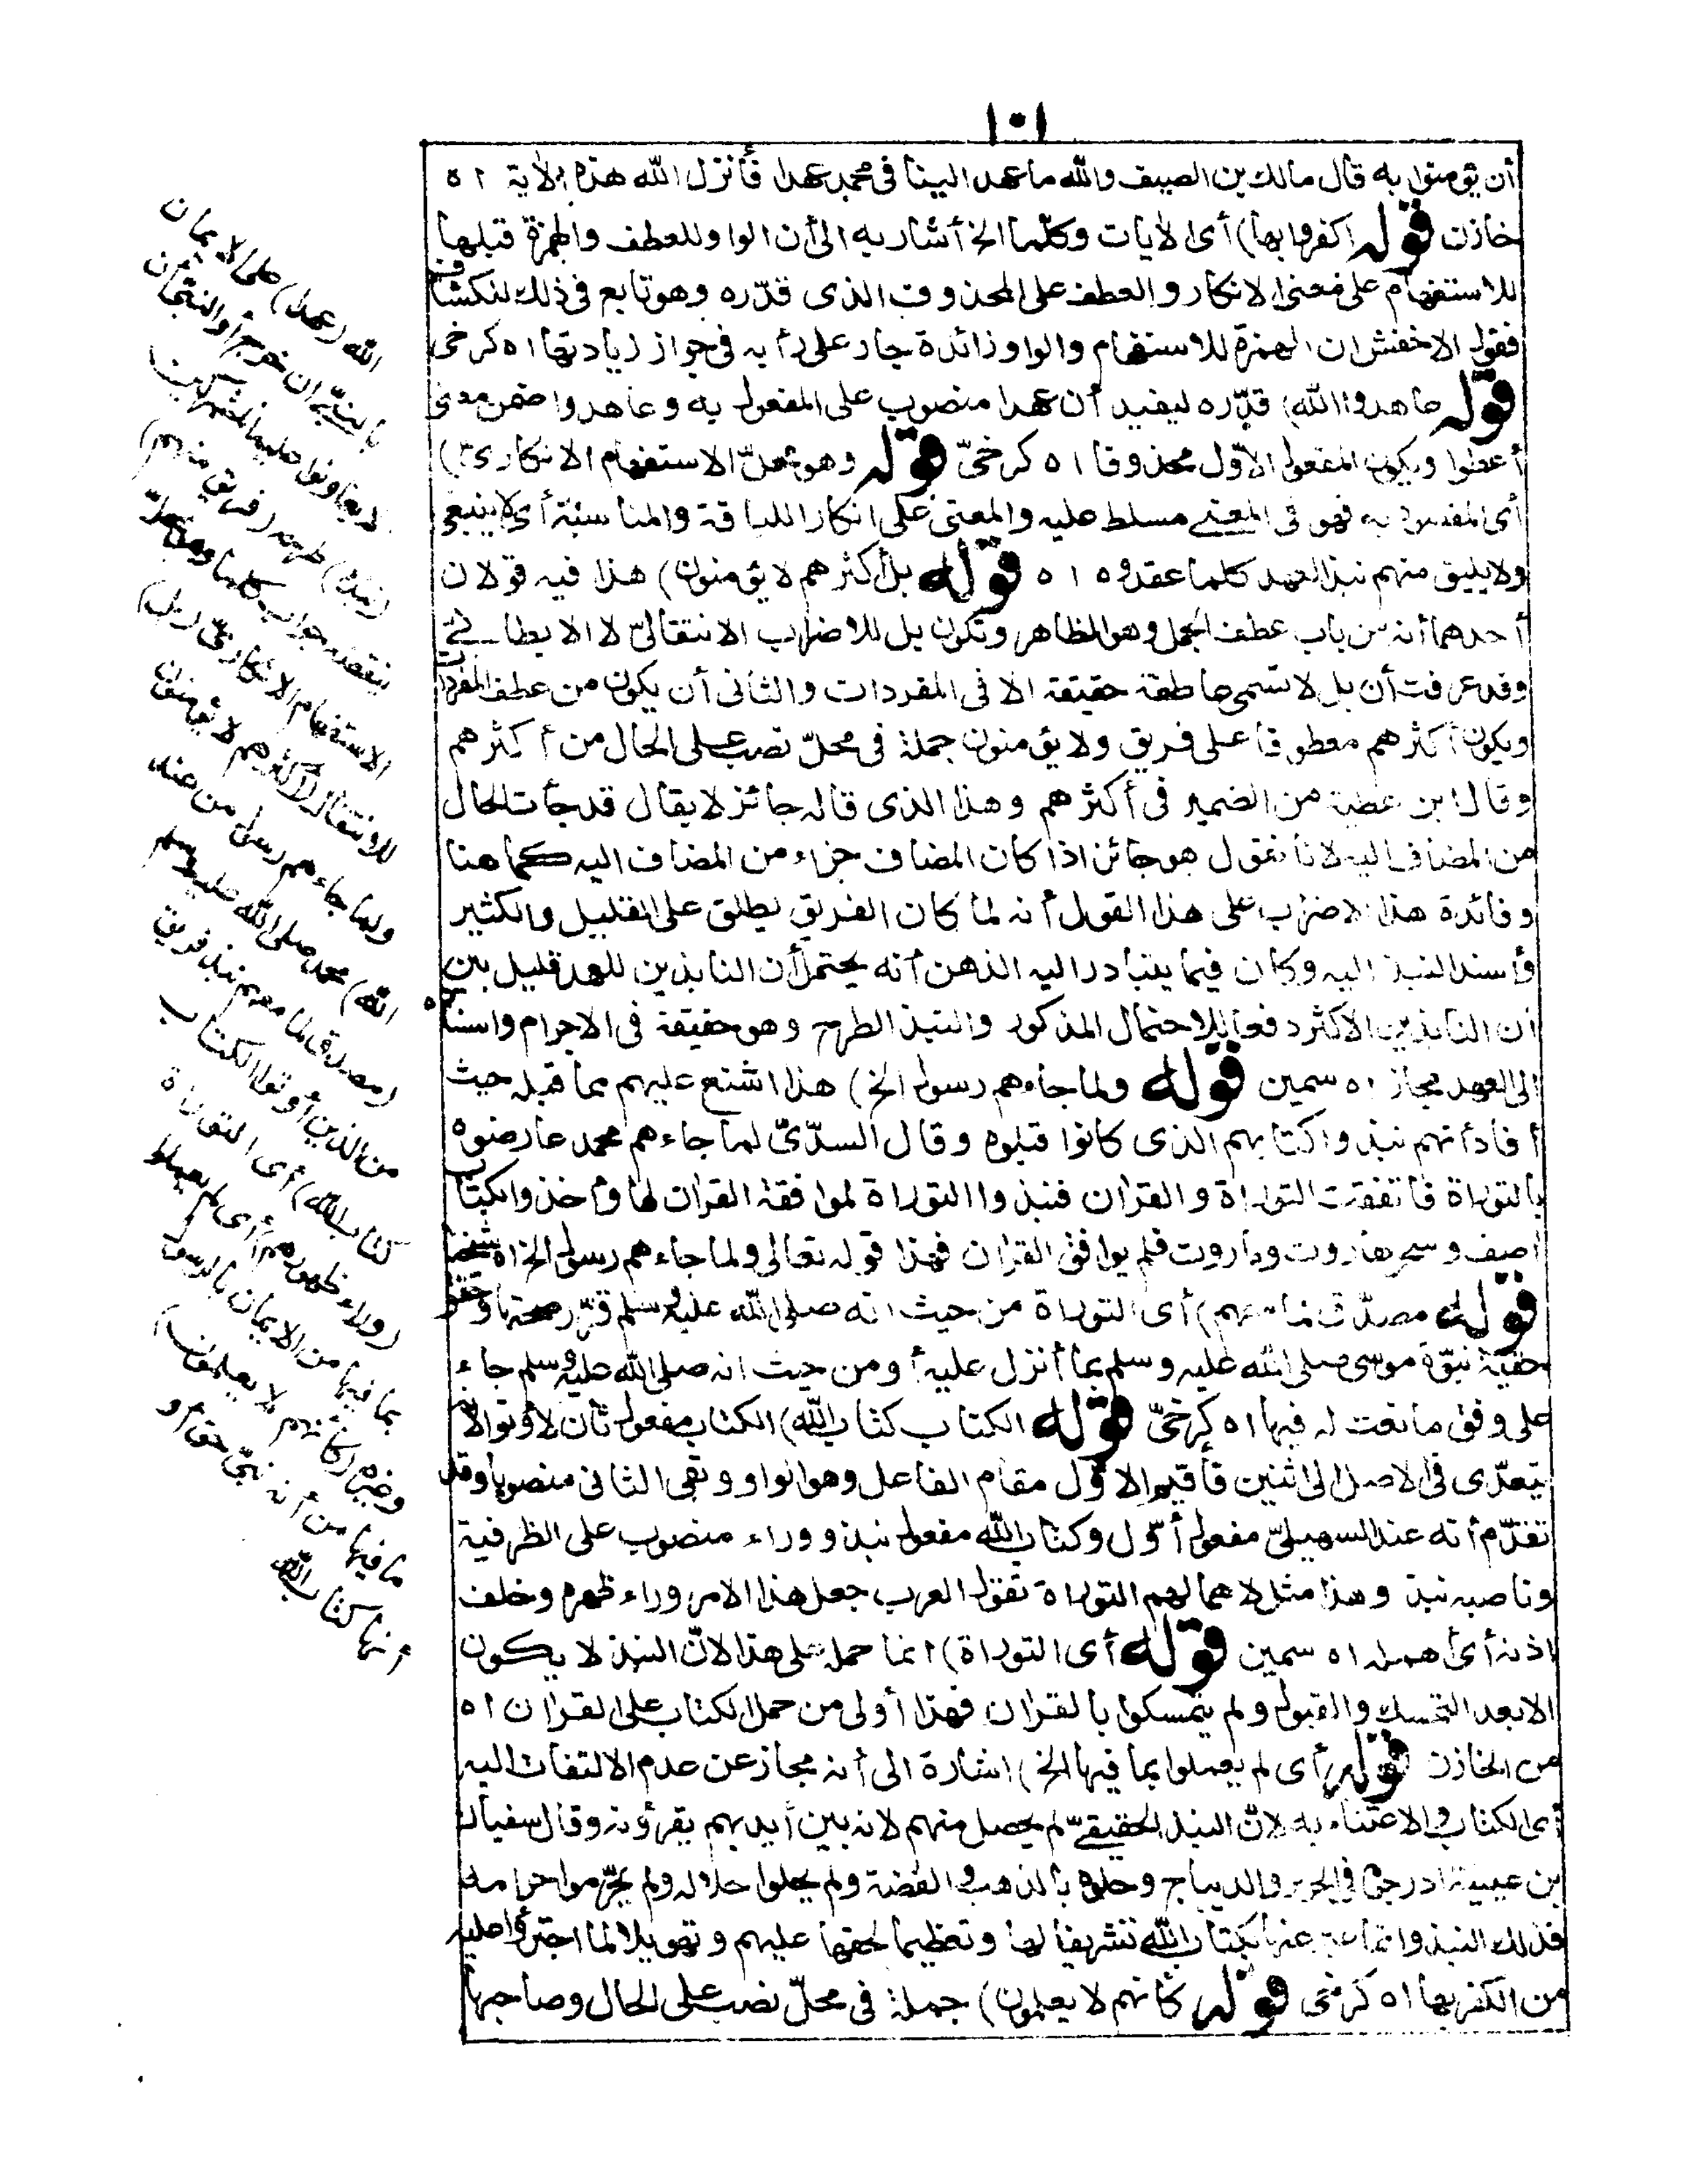 ١٠١
أن يؤمنوا به قال مالك بن الصيف والله ما عهد الينا فى محمد عهدا فأنزل الله هذه الآية ا ه
خازن قوله اكفروا بها) أى الآيات وكلما الخ أشار به الى أن الواو للعطف والهمزة قبلها
للاستفهام على معنى الانكار والعطف على المحذوف الذى قدّره وهو تابع فى ذلك للكشاف
فقول الاخفش ان الهمزة للاستفهام والواو زائدة جار على رأيه فى جواز زيادتها ا ه كرخى
قوله عاهدوا الله) قدّره ليفيد أن عهدا منصوب على المفعول به وعاهدوا ضمن معنى
أعطوا ويكون المفعول الاوّل محذوفا ا ه كرخىّ قوله وهو محلّ الاستفهام الانكارىّ)
أى المقصود به فهو فى المعنى مسلط عليه والمعنى على انكار اللياقة والمناسبة أى لا ينبغى
ولا يليق منهم نبذ العهد كلما عقدوه ا ه قوله بل أكثرهم لا يؤمنون) هذا فيه قولان
أحدهما أنه من باب عطف الجمل وهو الظاهر وتكون بل للاضراب الانتقالىّ لا الابطالىّ
وقد عرفت أن بل لا تسمى عاطفة حقيقة الا فى المفردات والثانى أن يكون من عطف المفردات
ويكون أكثرهم معطوفا على فريق ولا يؤمنون جملة فى محلّ نصب على الحال من أكثرهم
وقال ابن عطية من الضمير فى أكثرهم وهذا الذى قاله جائز لا يقال قد جأت الحال
من المضاف اليه لانا نقول هو جائز اذا كان المضاف جزاء من المضاف اليه كما هنا
وفائدة هذا الاضراب على هذا القول أنه لما كان الفريق يطلق على القليل والكثير
وأسند النبذ اليه وكان فيما يتبادر اليه الذهن أنه يحتمل أن النابذين للعهد قليل بين
أن النابذين الاكثر دفعا للاحتمال المذكور والنبذ الطرح وهو حقيقة فى الاجرام واسناده
الى العهد مجاز ا ه سمين قوله ولما جاءهم رسول الخ) هذا اشنع عليهم مما قبله حيث
أفاد أنهم نبذوا كتابهم الذى كانوا قبلوه وقال السدّىّ لما جاءهم محمد عارضوه
بالتوراة فاتفقت التوراة والقرآن فنبذوا التوراة لموافقة القرآن لها وأخذوا بكتاب
آصف وسحر هاروت وماروت فلم يوافق القرآن فهذا قوله تعالى ولما جاءهم رسول الخ ا ه شيخنا
قوله مصدّق لما معهم) أى التوراة من حيث انه صلى الله عليه وسلم قرّر صحتها وحقق
حقية نبوّة موسى صلى الله عليه وسلم بما أنزل عليه أو من حيث انه صلى الله عليه وسلم جاء
على وفق ما نعت له فيها ا ه كرخىّ قوله الكتاب كتاب الله) الكتاب مفعول ثان لاوتوا لأنه
يتعدّى فى الاصل الى اثنين فأقيم الاوّل مقام الفاعل وهو الواو وبقى الثانى منصوبا وقد
تقدّم أنه عند السهيلىّ مفعول أوّل وكتاب الله مفعول نبذ ووراء منصوب على الظرفية
وناصبه نبذ وهذا مثل لاهمالهم التوراة تقول العرب جعل هذا الامر وراء ظهره وخلف
اذنه أى أهمله ا ه سمين قوله أى التوراة) انما حمله على هذا لانّ النبذ لا يكون
الا بعد التمسك والقبول ولم يتمسكوا بالقرآن فهذا أولى من حمل الكتاب على القرآن ا ه
من الخازن قوله أى لم يعملوا بما فيها الخ) اشارة الى أنه مجاز عن عدم الالتفات اليه
أى الكتاب والاعتناء به لانّ النبذ الحقيقىّ لم يحصل منهم لانه بين أيديهم يقرؤنه وقال سفيان
بن عيينة ادرجوه فى الحرير والديباج وحلوه بالذهب والفضة ولم يحلوا حلاله ولم يحرّموا حرامه
فذلك النبذ وانما عبر عنها بكتاب الله تشريفا لها وتعظيما لحقها عليهم وتهويلا لما اجترؤا عليه
من الكفر بها ا ه كرخى قوله كأنهم لا يعلمون) جملة فى محلّ نصب على الحال وصاحبها
الله (عهدا) على الايمان
بالنبىّ ان خرج أو النبىّ أن
لا يعاونوا عليه المشركين
(نبذه) طرحه (فريق منهم)
بنقضه جواب كلما وهو محلّ
الاستفهام الانكارىّ (بل)
للانتقال (أكثرهم لا يؤمنون
ولما جاءهم رسول من عند
الله) محمد صلى الله عليه وسلم
(مصدق لما معهم نبذ فريق
من الذين أوتوا الكتاب
كتاب الله) أى التوراة
(وراء ظهورهم) أى لم يعملوا
بما فيها من الايمان بالرسول
وغيره (كأنهم لا يعلمون)
ما فيها من أنه نبىّ حق أو
أنها كتاب الله